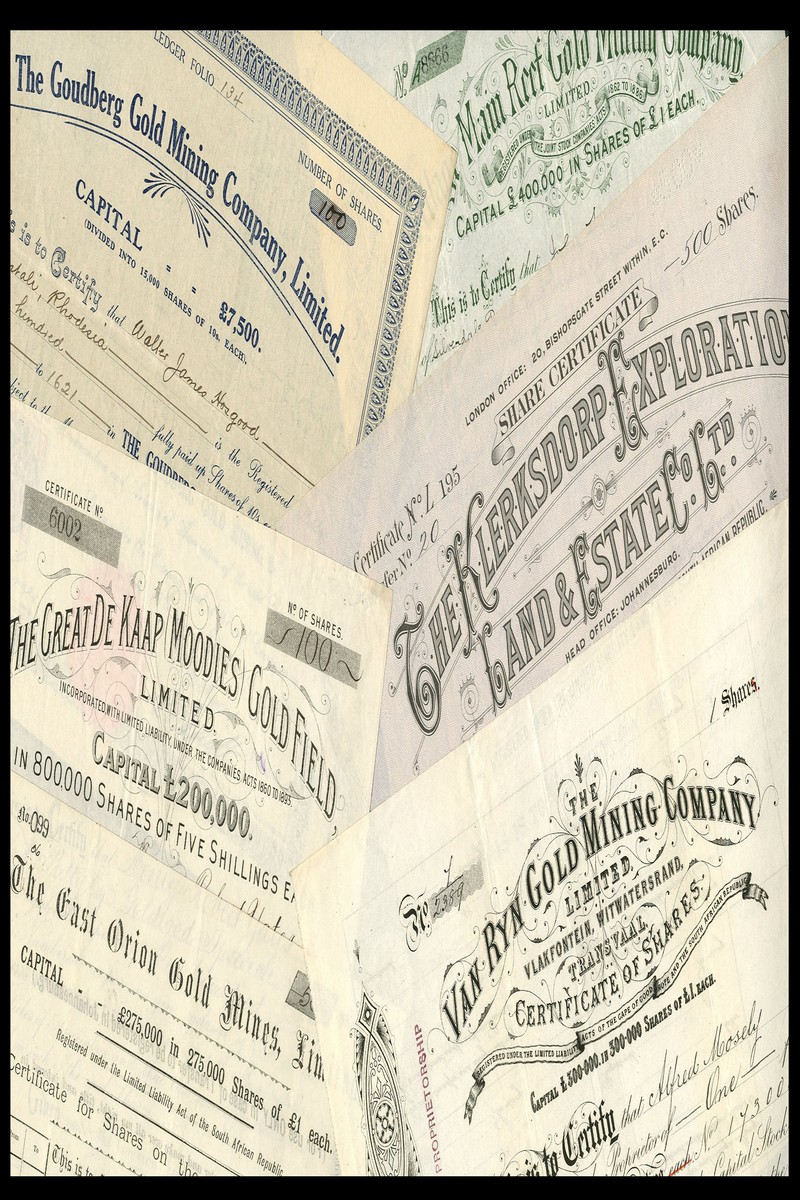 LEDGER FOLIO 134
The Goudberg Gold Mining Company, Limited.
NUMBER OF SHARES.
100
CAPITAL = = £7,500.
(DIVIDED INTO 15,000 SHARES OF 10s. EACH.)
is is to Certify that Walter James Hosgood
Rhodesia
hundred
to 1621 fully paid up Shares of 10s
in THE GOUDBERG
is the Registered
No 48666
Main Reef Gold Mining Company
LIMITED.
REGISTERED UNDER THE JOINT STOCK COMPANIES ACTS 1862 TO 1886
CAPITAL £400,000 IN SHARES OF £1 EACH.
This is to Certify that
500 Shares.
LONDON OFFICE: 20, BISHOPSGATE STREET WITHIN, E.C.
SHARE CERTIFICATE
Certificate No. L 195
fer No 20
THE KLERKSDORP EXPLORATIO
LAND & ESTATE Co. LTD.
HEAD OFFICE: JOHANNESBURG.
SOUTH AFRICAN REPUBLIC.
CERTIFICATE No
6002
No OF SHARES.
100
THE GREAT DE KAAP MOODIES GOLD FIELD,
LIMITED.
INCORPORATED WITH LIMITED LIABILITY, UNDER THE COMPANIES ACTS 1860 TO 1883.
CAPITAL £200,000.
IN 800,000 SHARES OF FIVE SHILLINGS EA
No 099
The East Orion Gold Mines, Lim
CAPITAL - - £275,000 in 275,000 Shares of £1 each.
Registered under the Limited Liability Act of the South African Republic
Certificate for Shares on the
This is to
1 Shares.
No 2389
THE
VAN-RYN GOLD MINING COMPANY
LIMITED,
VLAKFONTEIN, WITWATERSRAND,
TRANSVAAL.
CERTIFICATE OF SHARES.
REGISTERED UNDER THE LIMITED LIABILITY ACTS OF THE CAPE OF GOOD HOPE AND THE SOUTH AFRICAN REPUBLIC
CAPITAL £500,000, IN 500,000 SHARES OF £1. EACH.
PROPRIETORSHIP
is to Certify that Alfred Mosely
Proprietor of One
No 7300
Capital Stock